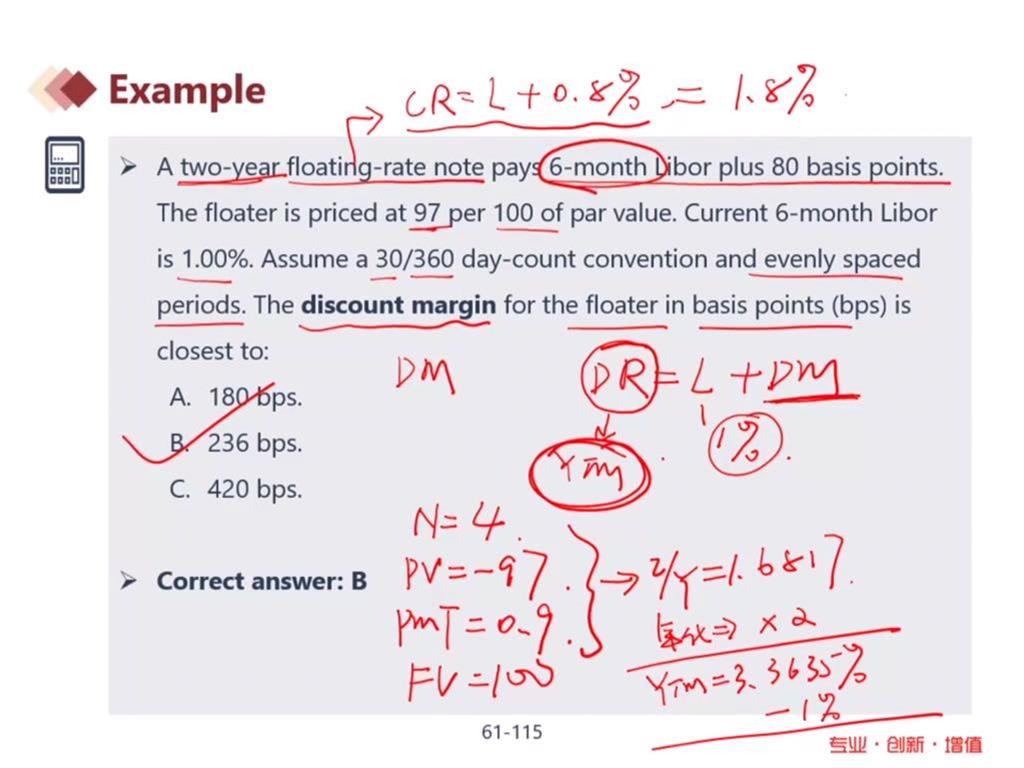 Example
CR = L + 0.8% = 1.8%
➤ A two-year floating-rate note pays 6-month Libor plus 80 basis points.
The floater is priced at 97 per 100 of par value. Current 6-month Libor
is 1.00%. Assume a 30/360 day-count convention and evenly spaced
periods. The discount margin for the floater in basis points (bps) is
closest to:
DM
DR = L + DM
1%
YTM
A. 180 bps.
B. 236 bps.
C. 420 bps.
➤ Correct answer: B
N = 4
PV = -97
PMT = 0.9
FV = 100
I/Y = 1.6817
年化 ⇒ × 2
YTM = 3.3635%
- 1%
61-115
专业·创新·增值